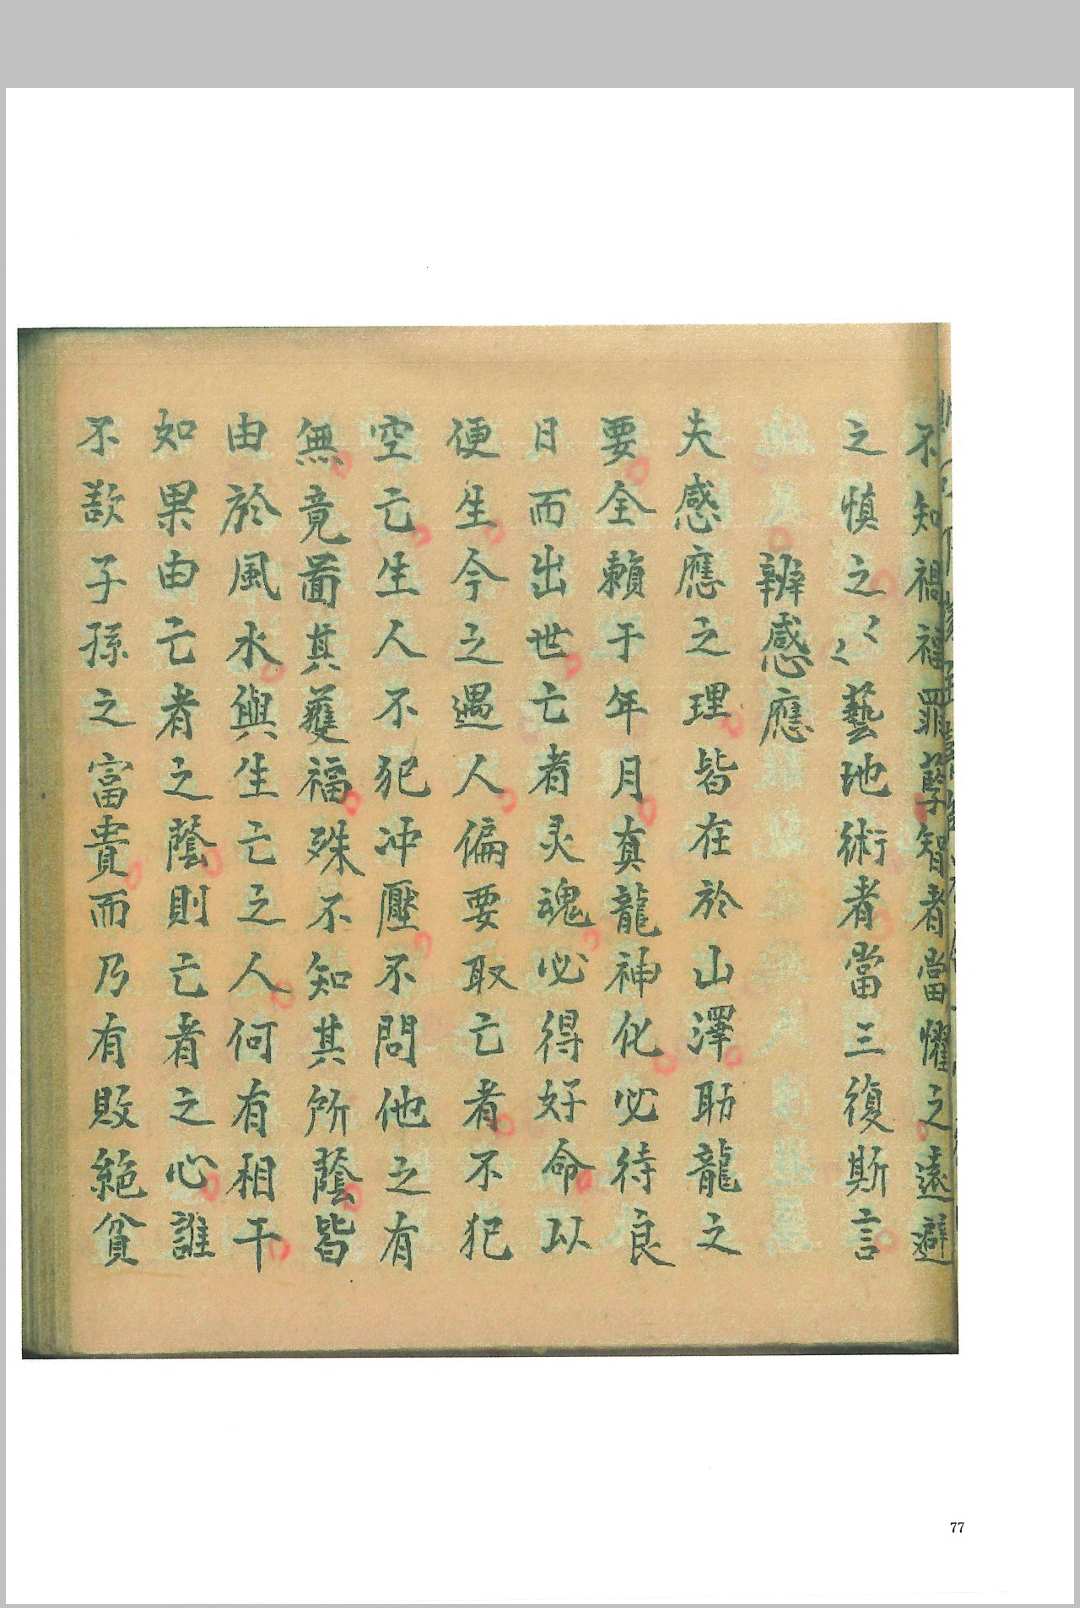 不知禍福罪孽智者當懼之遠避
之慎之〻〻藝地術者當三復斯言
辨感應
夫感應之理皆在於山澤助龍之
要全賴于年月真龍神化必待良
日而出世亡者灵魂必得好命以
便生今之遇人偏要取亡者不犯
空亡生人不犯冲壓不問他之有
無竟啚其䕶福殊不知其所蔭皆
由於風水與生亡之人何有相干
如果由亡者之蔭則亡者之心誰
不歆子孫之富貴而乃有敗絕貧
77